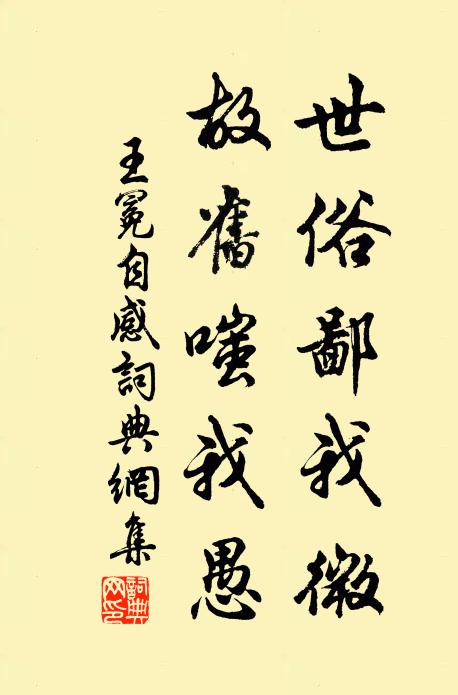 世俗鄙我微
故舊嗤我愚
王冕自感詞典網集
詞典
网印